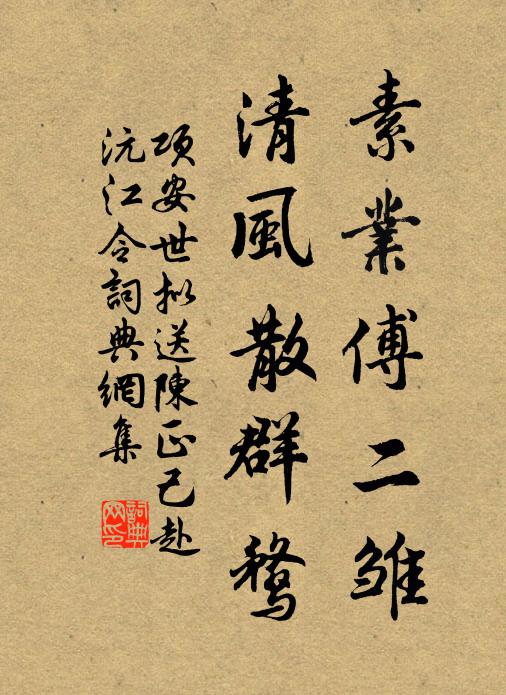 素業傅二雏
清風散群鶩
項安世拟送陳正己赴
沅江令詞典網集
詞典
网印